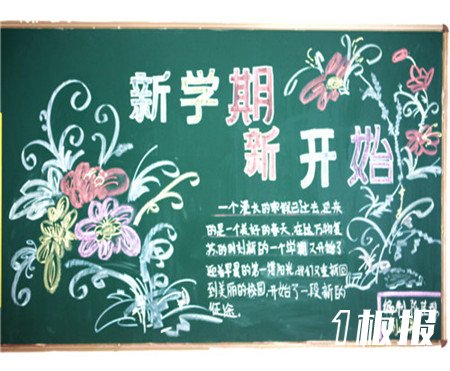 新学期
新开始
一个漫长的寒假已过去,迎来
的是一个美好的春天,在这万物复
苏的时刻新的一个学期又开始了
迎着早晨的第一缕阳光,我们又重新回
到美丽的校园,开始了一段新的
征途.
1板报